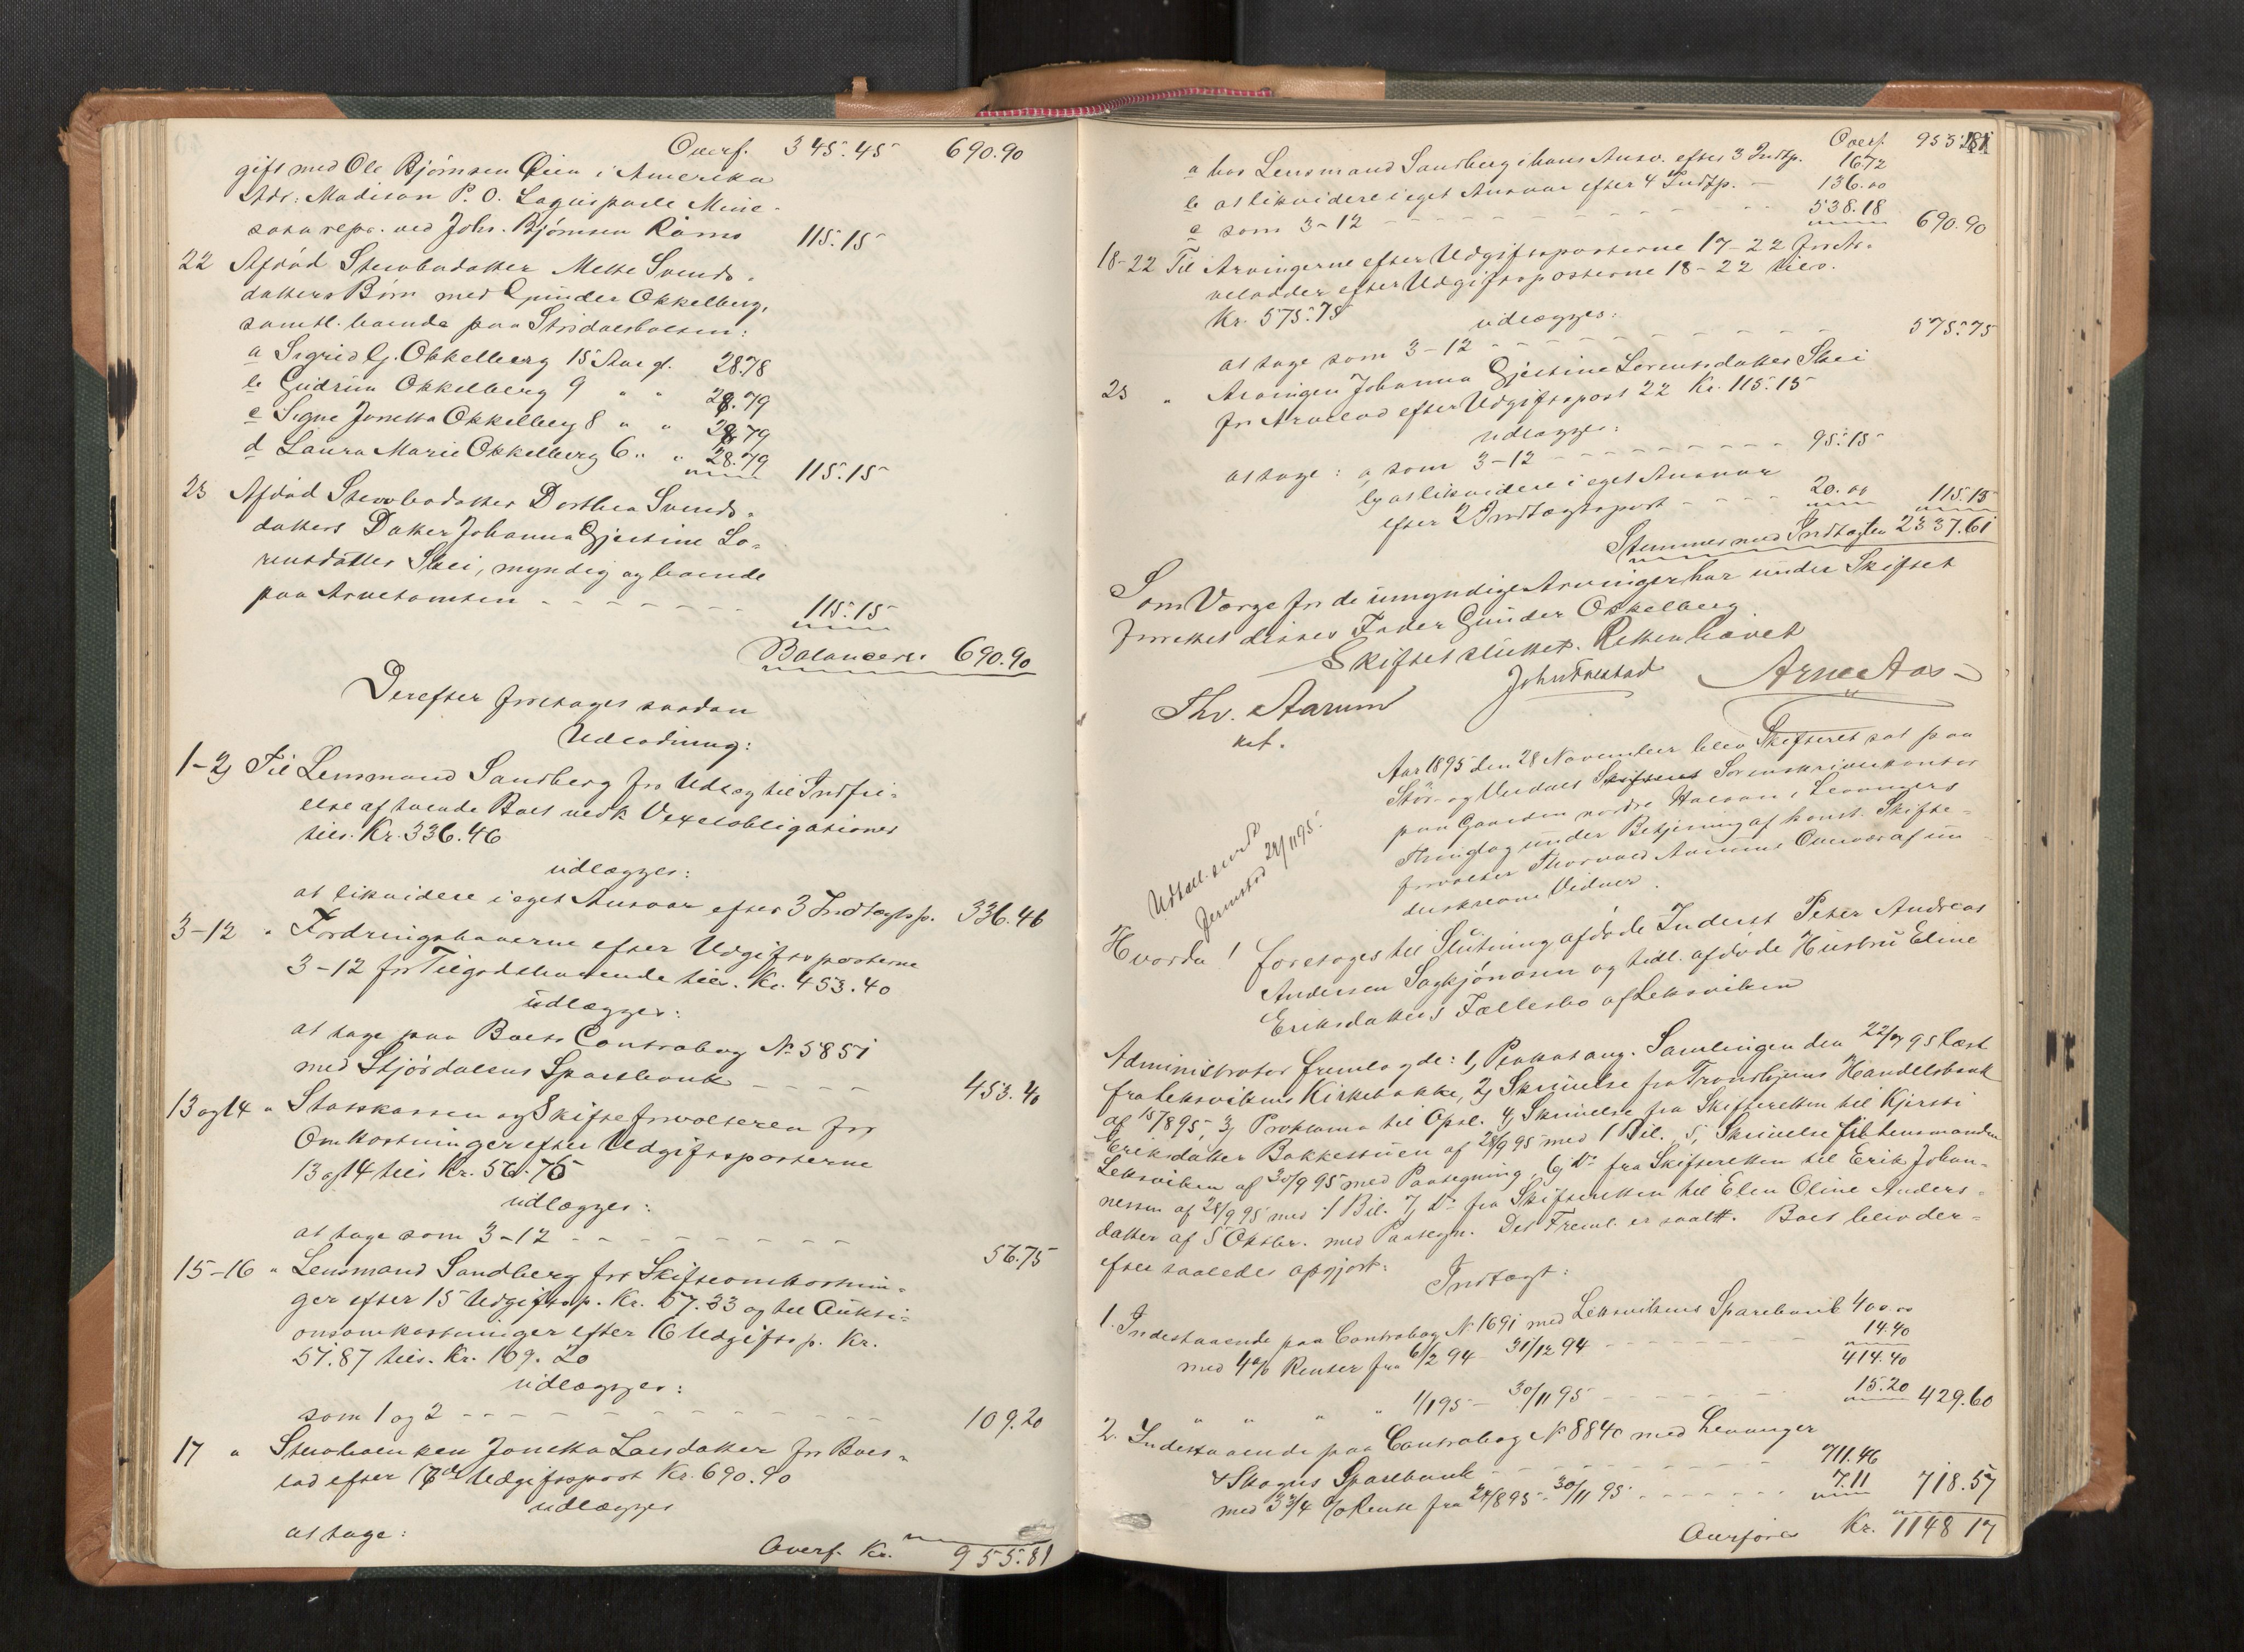 Overf. 345.45 690.90
gift med Ole Bjørnsen Øien i Amerika
Adr: Madison P. O. Laquiparle Mine-
sota repr. ved Johs. Bjørnsen Rømo 115.15
22 Afdød Stervbodatter Mette Svends-
datters Børn med Gunder Okkelberg,
samtl. boende paa Stridalsvolden:
a Sigrid G. Okkelberg 15 Aar gl. 28.78
b Gudrun Okkelberg 9 " " 28.79
c Signe Jonetta Okkelberg 8 " " 28.79
d Laura Marie Okkelberg 6 " " 28.79 115.15
23 Afdød Stervbodatter Dorthea Svends-
datters Datter Johanna Gjertine Lo-
rentsdatter Skei, myndig og boende
paa Arvetomten - - - - - - - 115.15
Balancerer 690.90
Derefter foretoges saadan
Udlodning:
1-2) Til Lensmand Sandberg for Udlæg til Indfri-
else af tvende Boet vedk. Vexelobligationer
tils. Kr. 336.46
udlægges:
at likvidere i eget Ansvar efter 3 Indtægtsp. 336.46
3-12 " Fordringshaverne efter Udgiftsposterne
3-12 for Tilgodehavende tils. Kr. 453.40
udlægges:
at tage paa Boets Contrabog No 5851
med Stjørdalens Sparebank - - - - 453.40
13 og 14 " Statskassen og Skifteforvalteren for
Omkostninger efter Udgiftsposterne
13 og 14 tils Kr. 56.75
udlægges:
at tage som 3-12 - - - - - - - - 56.75
15-16 " Lensmand Sandberg for Skifteomkostnin-
ger efter 15 Udgiftsp. Kr. 57.33 og til Aukti-
onsomkostninger efter 16 Udgiftsp. Kr.
51.87 tils. Kr. 109.20
udlægges:
som 1 og 2 - - - - - - - - - - - 109.20
17 " Stervboenken Jonetta Larsdatter for Boes-
lod efter 17de Udgiftspost Kr. 690.90
udlægges
at tage:
Overf. Kr. 955.81
Overf. 955.81
a hos Lensmand Sandberg i hans Ansv. efter 3 Indtp. 16.72
b at likvidere i eget Ansvar efter 4 Indtp. - 136.00
c som 3-12 - - - - - - - - - 538.18 690.90
18-22 Til Arvingerne efter Udgiftsposterne 17-22 for Ar-
velodder efter Udgiftsposterne 18-22 tils.
Kr. 575.75
udlægges:
at tage som 3-12 - - - - - - - - - 575.75
23 " Arvingen Johanna Gjertine Lorentsdatter Skei
for Arvelod efter Udgiftspost 22 Kr. 115.15
udlægges:
at tage: a, som 3-12 - - - - - - - 95.15
b, at likvidere i eget Ansvar
efter 2 Indtægtspost - - - - 20.00 115.15
Stemmer med Indtægten 2337.61
Som Værge for de umyndige Arvinger har under Skiftet
fungeret disses Fader Gunder Okkelberg.
Skiftet sluttet. Retten hævet
Thv. Aarum John Falstad Arne Aas
kst.
Udskr. sendt
Jernstad 29/11 95.
Aar 1895 den 28 November blev Skifteret sat paa
Stør- og Værdals Skifteret Sorenskriverkontor
paa Gaarden nordre Halsan, Levangers
Thinglag under Betjening af konst. Skifte-
forvalter Thorvald Aarum i Overvær af un-
derskrevne Vidner.
Hvorda! foretoges til Slutning afdøde Inderst Peter Andreas
Andersen Sagkjønåsen og tidl. afdøde Hustru Eline
Eriksdatters Fællesbo af Leksviken
Administrator fremlagde: 1, Plakat ang. Samlingen den 22/7 95 læst
fra Leksvikens Kirkebakke, 2, Skrivelse fra Trondhjems Handelsbank
af 15/8 95, 3, Proklama til Opsl. 4, Skrivelse fra Skifteretten til Kjersti
Eriksdatter Bakkestuen af 28/9 95 med 1 Bil. 5, Skrivelse til Lensmanden
Leksviken af 30/9 95 med Paategning, 6, Do fra Skifteretten til Erik Johan-
nessen af 28/9 95 med 1 Bil. 7, Do fra Skifteretten til Elen Oline Anders-
datter af 5 Oktbr. med Paategn. Det Freml. er saalt. Boet blev der-
efter saaledes opgjort:
Indtægt:
1. Indestaaende paa Contrabog No 1691 med Leksvikens Sparebank 400.00
med 4% Renter fra 6/2 94 - 31/12 94 - - - - - - - 14.40
414.40
" " " " 1/1 95 - 30/11 95 - - - - - - - 15.20 429.60
2. Indestaaende paa Contrabog No 8840 med Levanger
& Skogns Sparebank - - - - - - - - - 711.46
med 3 3/4 % Rente fra 24/8 95 - 30/11 95 - - - - - - 7.11 718.57
Overføres Kr. 1148 17